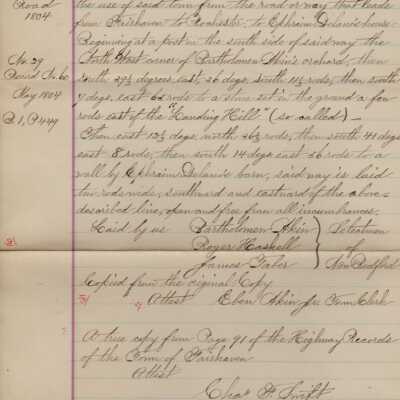 Road
1804
No. 29
David No. 60
May 1804
B 1, P 449
the use of said town from the road or way that leads
from Fairhaven to Rochester, to Ephraim Delano's house.
Beginning at a post in the south side of said way the
North West corner of Bartholomew Akin's orchard, then
south 29½ degrees, east 26 degs, south 11½ rods, then south
9 degs, east 62 rods to a stone set in the ground a few
rods east of the "Landing Hill" (so called)
Then east 12½ degs, north 26½ rods, then south 41 degs
east 8 rods, then south 14 degs east 56 rods to a
wall by Ephraim Delano's barn, said way is laid
two rods wide, southward and eastward of the above
described line, open and free from all incumbrances.
Laid by us Bartholomew Akin } Selectmen
Roger Haskell } of
James Taber } New Bedford
Copied from the original Copy
Attest Eben Akin Jr. Town Clerk
A true copy from Page 91 of the Highway Records
of the Town of Fairhaven
Attest
Chas. F. Swift